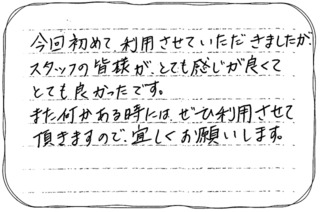 今回初めて、利用させていただきましたが、
スタッフの皆様が、とても感じが良くて
とても良かったです。
また何かある時には、ぜひ利用させて
頂きますので、宜しくお願いします。